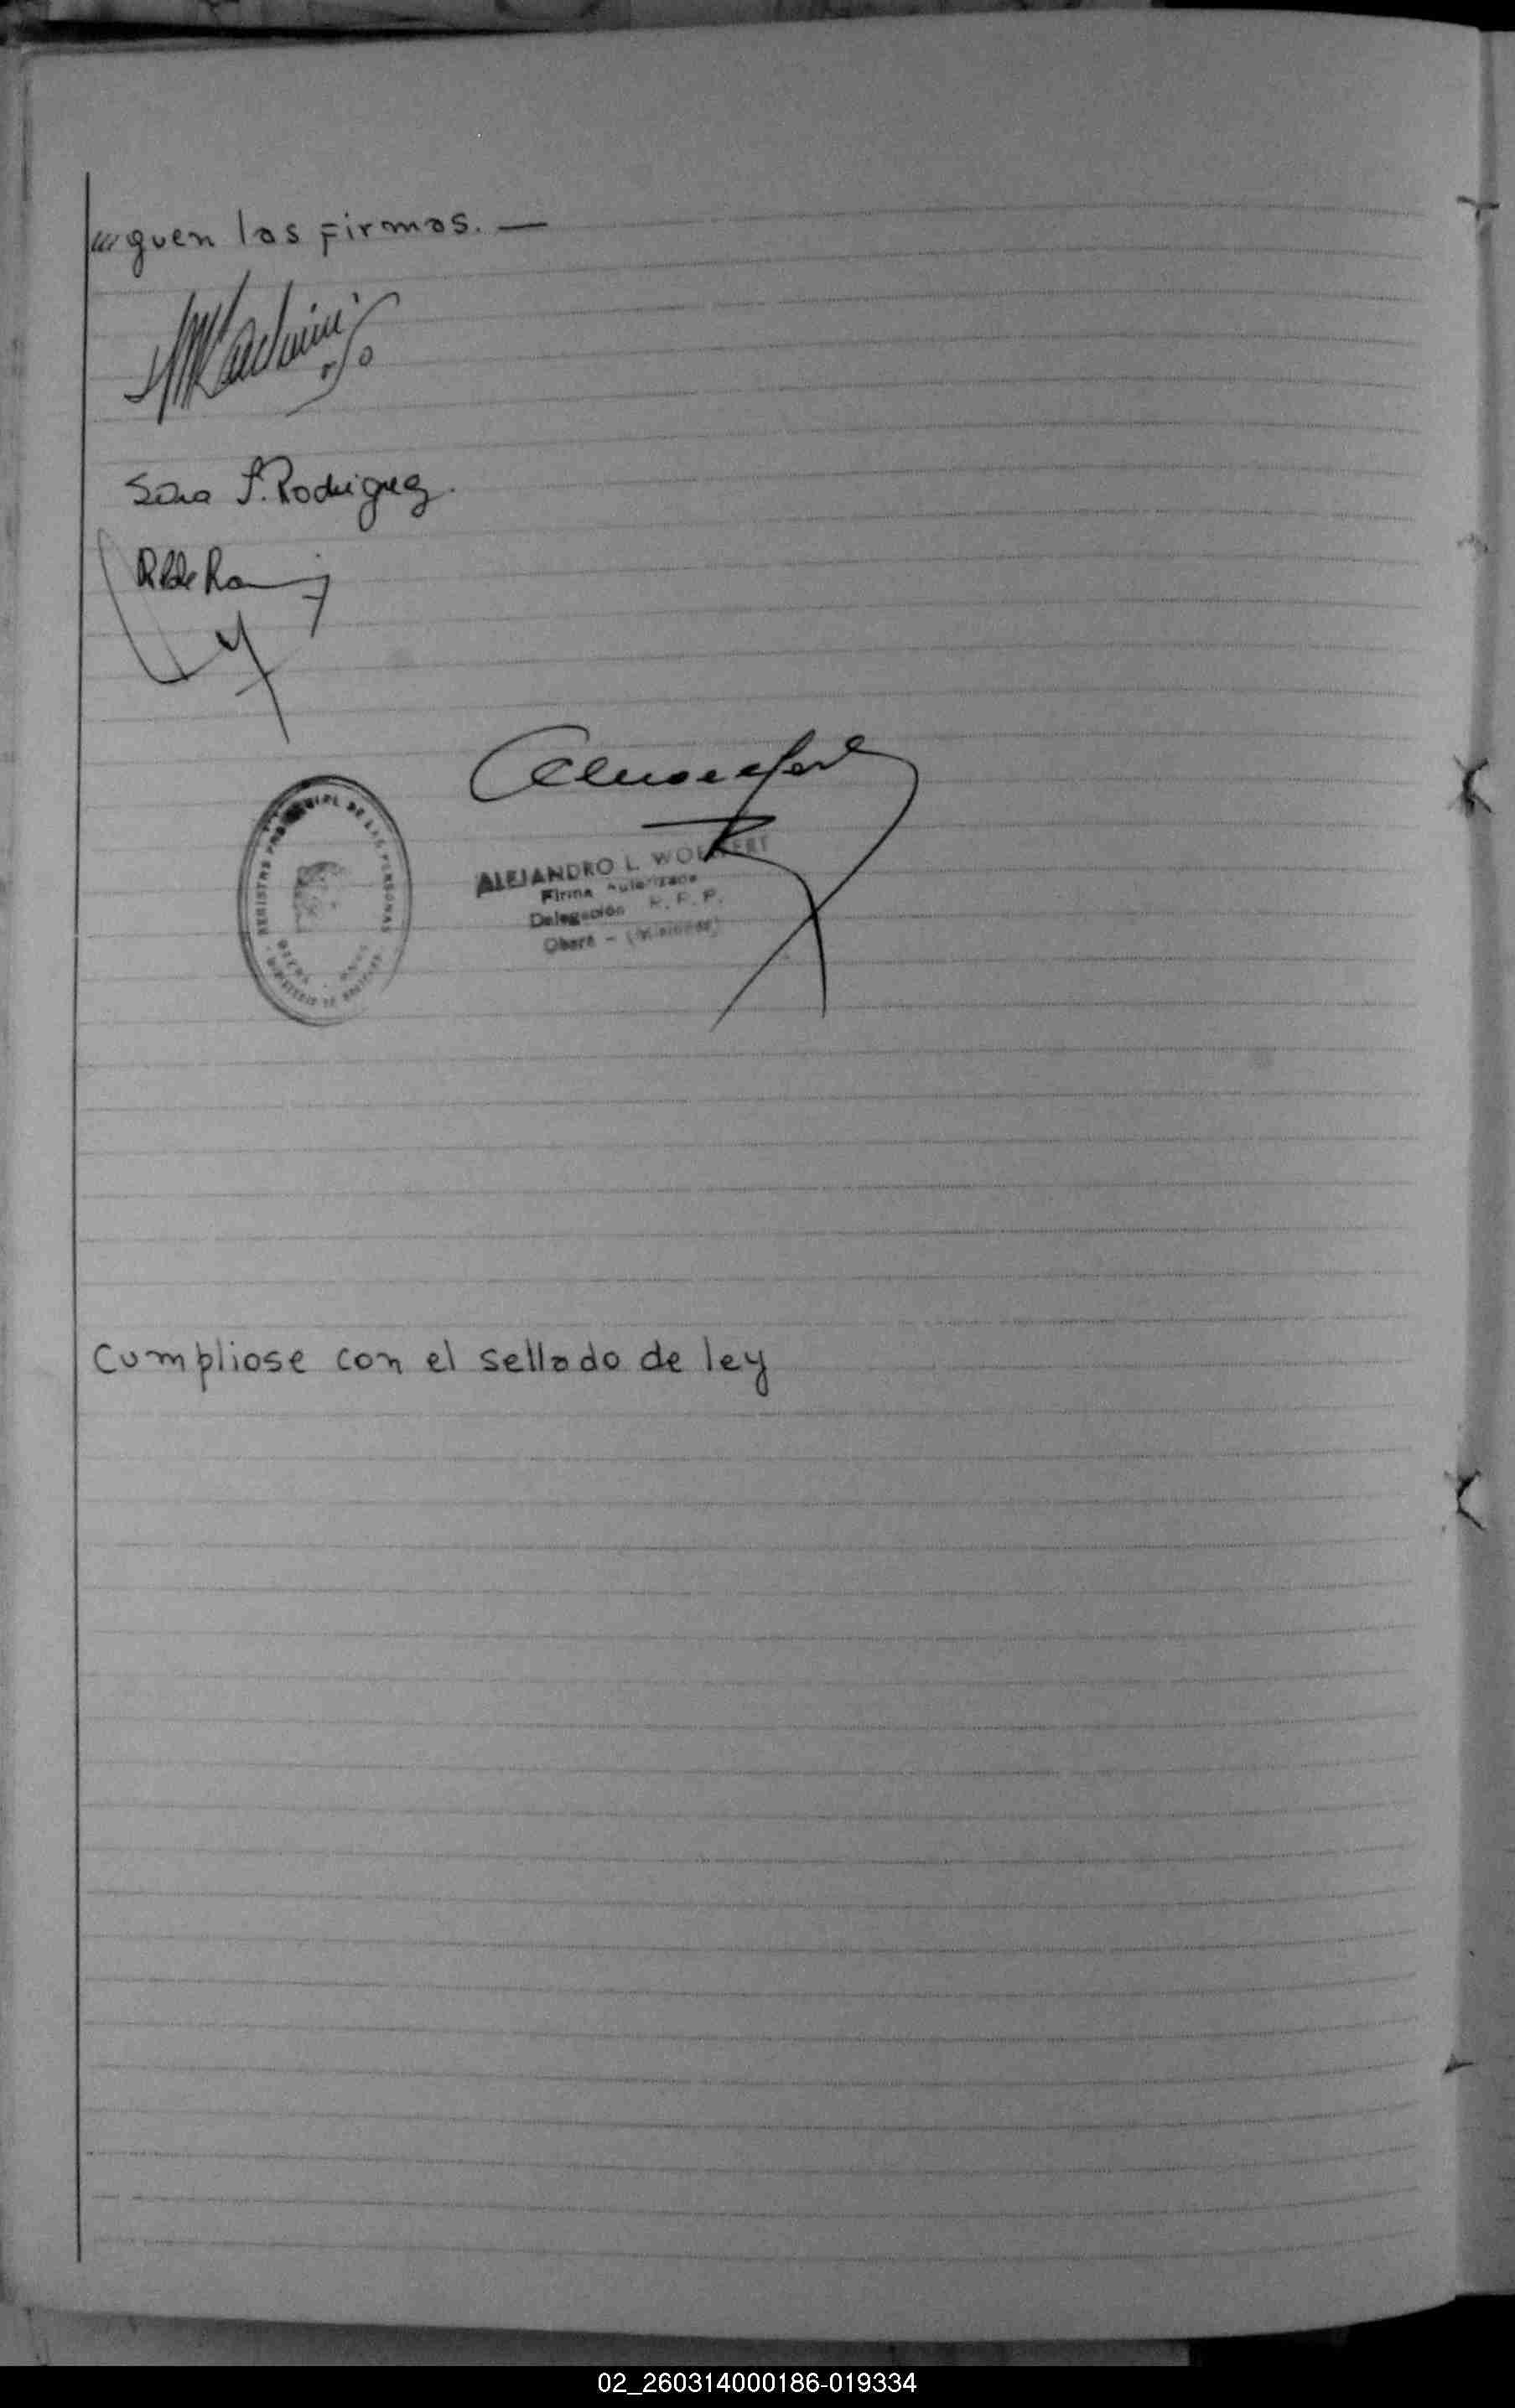 ///guen las firmas. —
Sara S. Rodriguez.
REGISTRO PROVINCIAL DE LAS PERSONAS
ALEJANDRO L. WOLFFERT
Firma Autorizada
Delegación R. P. P.
Oberá - (Misiones)
Cumpliose con el sellado de ley
02_260314000186-019334